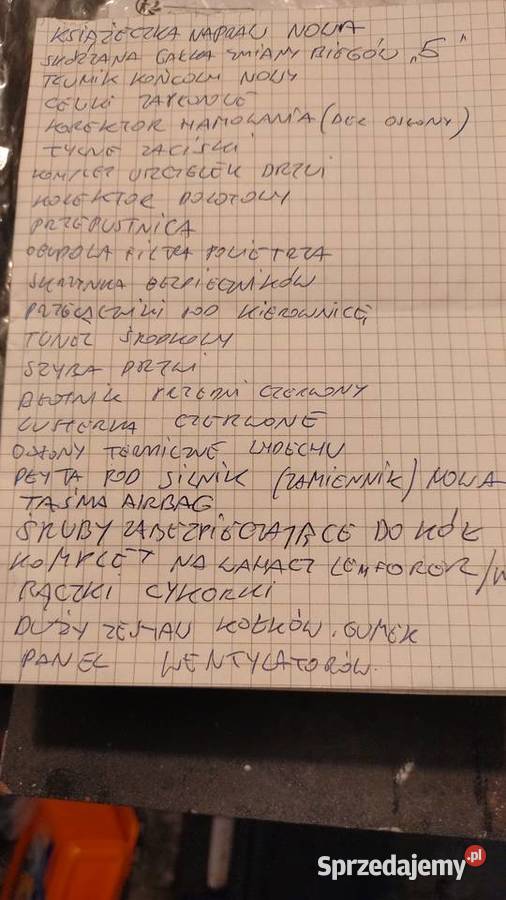 KSIĄŻECZKA NAPRAW NOWA
SKÓRZANA GAŁKA ZMIANY BIEGÓW „5"
TŁUMIK KOŃCOWY NOWY
CEWKI ZAPŁONOWE
KOREKTOR HAMOWANIA (BEZ OSŁONY)
TYLNE ZACISKI
KOMPLET USZCZELEK DRZWI
KOLEKTOR DOLOTOWY
PRZEPUSTNICA
OBUDOWA FILTRA POWIETRZA
SKRZYNKA BEZPIECZNIKÓW
PRZEŁĄCZNIKI POD KIEROWNICĘ
TUNEL ŚRODKOWY
SZYBA DRZWI
BŁOTNIK PRZEDNI CZERWONY
LUSTERKA CZERWONE
OSŁONY TERMICZNE WYDECHU
PŁYTA POD SILNIK (ZAMIENNIK) NOWA
TAŚMA AIRBAG
ŚRUBY ZABEZPIECZAJĄCE DO KÓŁ
KOMPLET NA WAHACZ LEMFORER/
RĄCZKI CYKORKI
DUŻY ZESTAW KOŁKÓW, GUMEK
PANEL WENTYLATORÓW.
Sprzedajemy.pl